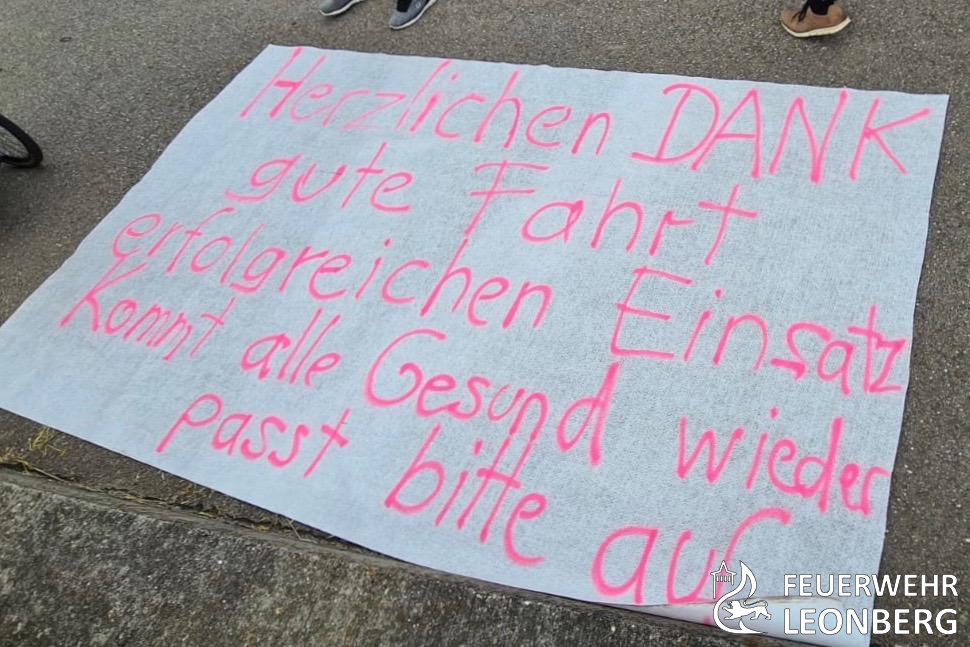 Herzlichen DANK
gute Fahrt
erfolgreichen Einsatz
Kommt alle Gesund wieder
passt bitte auf
FEUERWEHR
LEONBERG